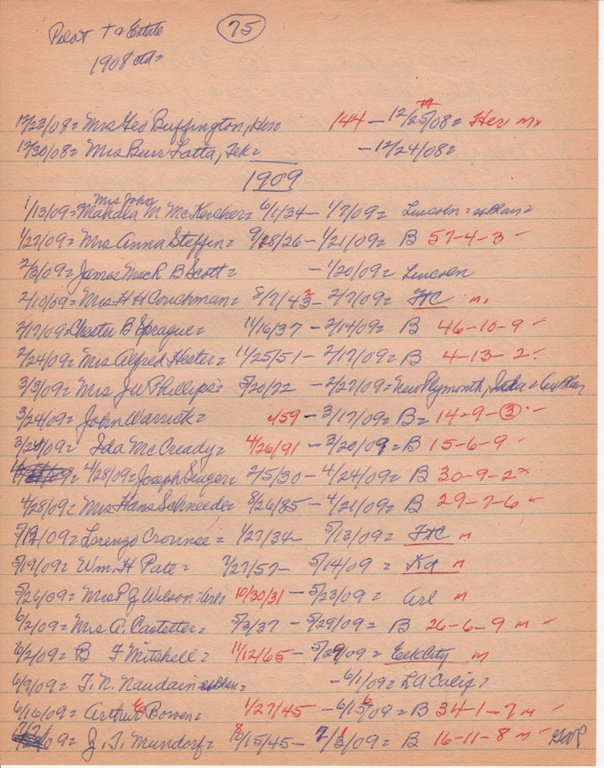 Pilot + a Estate 75
1908 ctd=
12/23/08= Mrs Geo Buffington, Her= 144 - 12/25/08= Her m
12/30/08= Mrs Burr Latta, Tek= - 12/24/08=
1909
Mrs John
1/13/09= Mahala M. McKeicher= 6/1/34 - 1/7/09= Lincoln=
1/27/09= Mrs Anna Steffin= 9/18/26 - 1/21/09= B 57-4-3
2/3/09= James MacR B Scott= - 1/20/09= Lincoln
2/10/09= Mrs H H Couchman= 8/7/43 - 2/7/09= m
2/17/09= Chester B Sprague= 11/16/37 - 2/14/09= B 46-10-9
2/24/09= Mrs Alfred Hester= 11/25/51 - 2/17/09= B 4-13-2
3/3/09= Mrs J W Phillips= 5/20/22 - 2/27/09= New Plymonth, Ida=
3/24/09= John Warrick= 59 - 3/17/09= B= 14-9-3
3/24/09= Ida McCready= 4/26/91 - 3/20/09= B 15-6-9
4/28/09= Joseph Suiger= 2/5/30 - 4/24/09= B 30-9-2
4/28/09= Mrs Hans Schneede= 8/26/85 - 4/21/09= B 29-7-6
5/19/09= Lorenzo Crounse= 1/27/34 - 5/13/09= m
5/19/09= Wm. H Pate= 7/27/57 - 5/14/09= m
5/26/09= Mrs P J Wilson= Arl= 10/30/31 - 5/23/09= Arl m
6/2/09= Mrs A. Castetter= 5/3/37 - 5/29/09= B 26-6-9 m
6/2/09= B F Mitchell= 11/12/65 - 5/29/09= Elk City m
6/9/09= T. R. Naudain - 6/1/09= LA Calif=
6/16/09= Arthur E Bowen= 1/27/45 - 6/15/09= B 34-1-7 m
J. T. Mundorf= 8/15/45 - 7/3/09= B 16-11-8 m GAR